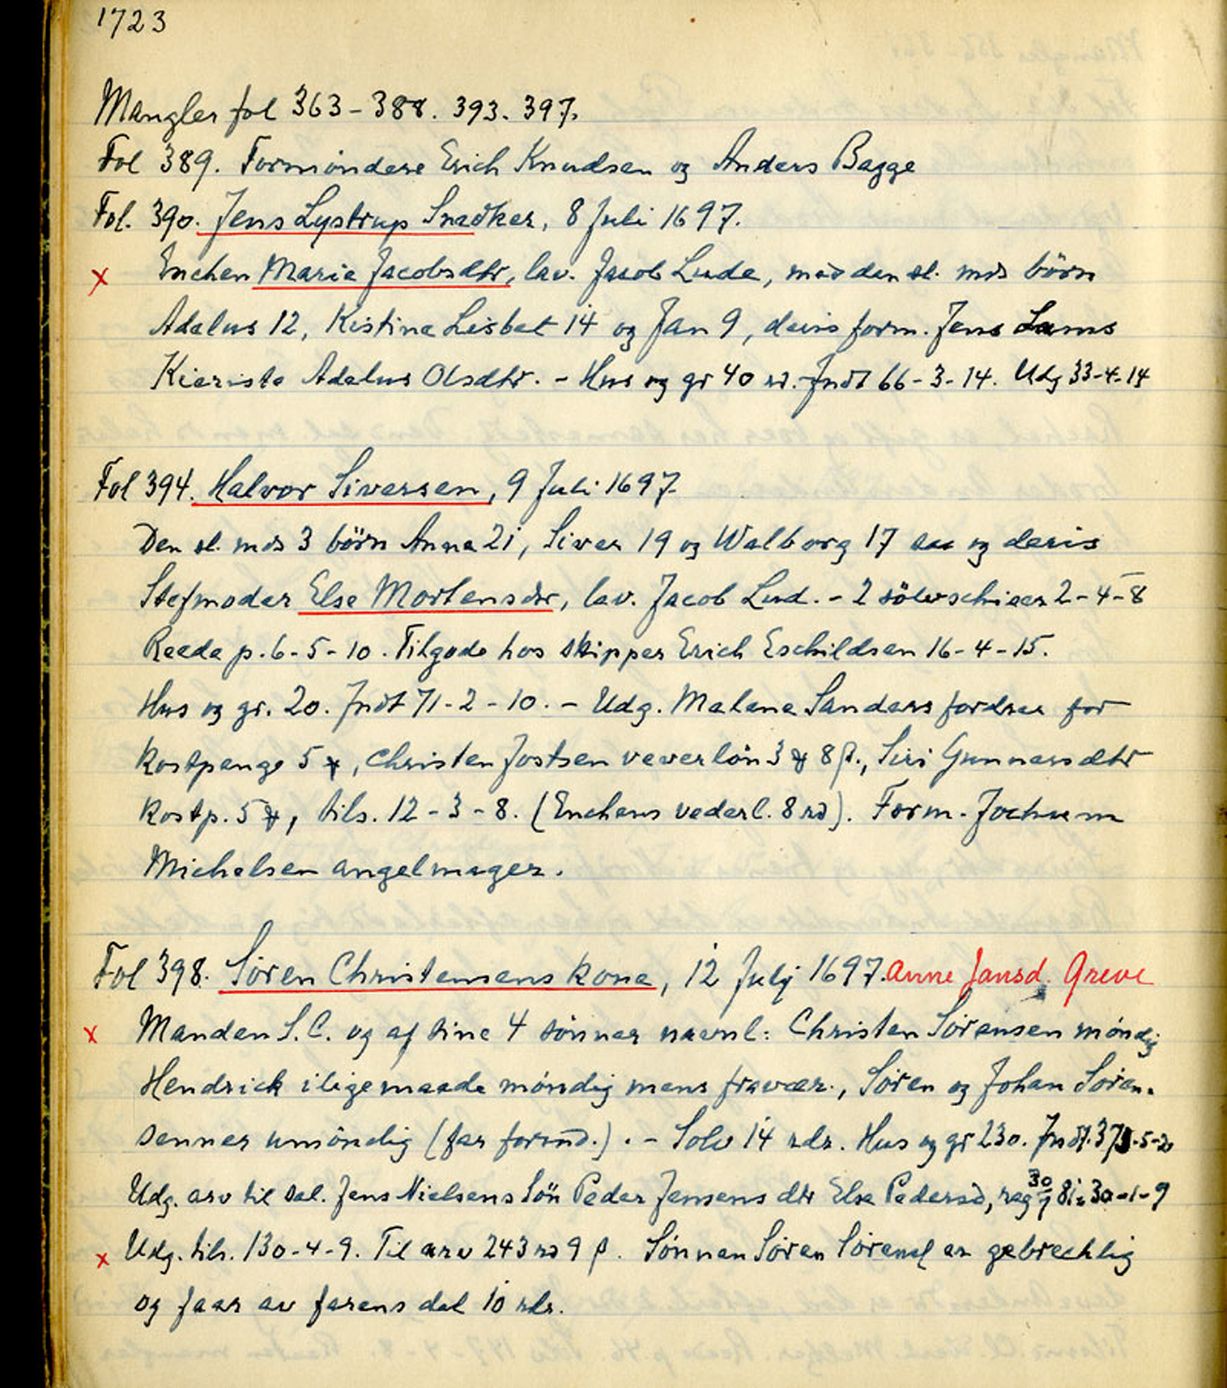 1723
Mangler fol 363-388. 393. 397.
Fol 389. Formöndere Erich Knudsen og Anders Bagge
Fol. 390. Jens Lystrup Snedker, 8 Juli 1697.
x Enchen Marie Jacobsdtr, lav. Jacob Lude, med den sl. mds börn
Adelus 12, Kistine Lisbet 14 og Jan 9, deris form. Jens Lams
Kieriste Adelus Olsdtr. - Hus og gr 40 rd. Jndt 66-3-14. Udg 33-4-14
Fol 394. Halvor Siversen, 9 Juli 1697.
Den sl. mds 3 börn Anna 21, Siver 19 og Walborg 17 og deris
Stefmoder Else Mortensdtr, lav. Jacob Lud. - 2 sölvschieer 2-4-8
Reede p. 6-5-10. Tilgode hos skipper Erich Eschildsen 16-4-15.
Hus og gr. 20. Jndt 71-2-10. - Udg. Malene Sanders fordrer for
kostpenge 5 , Christen Jostsen veverlön 3 8 β., Siri Gunnersdtr
kostp. 5 , tils. 12-3-8. (Enchens vederl. 8 rd). Form. Jochum
Michelsen angelmager.
Fol 398. Sören Christensens kone, 12 Julj 1697. Anne Jansd. Greve
x Manden S.C. og af sine 4 sönner navnl: Christen Sörensen möndig
Hendrick iligemaade möndig mens fravær., Sören og Johan Sören-
senner umöndig (far formd.). - Solv 14 rdr. Hus og gr 230. Jndt.
Udg. arv til sal. Jens Nielsens Sön Peder Jensens dtr Else Pedersd, 30-1-9
x Udg. tils. 130-4-9. Til arv 243 rd 9 β. Sönnen Sören Sörens er gebrechlig
og faar av farens del 10 rdr.